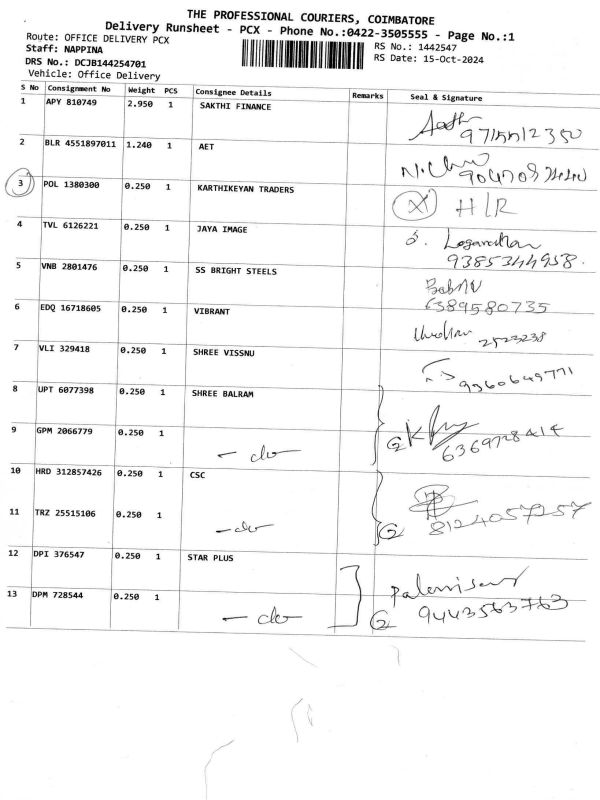 THE PROFESSIONAL COURIERS, COIMBATORE
Delivery Runsheet - PCX - Phone No.:0422-3505555 - Page No.:1
Route: OFFICE DELIVERY PCX
RS No.: 1442547
Staff: NAPPINA
RS Date: 15-Oct-2024
DRS No.: DCJB144254701
Vehicle: Office Delivery
S No Consignment No Weight PCS Consignee Details Remarks Seal & Signature
1 APY 810749 2.950 1 SAKTHI FINANCE
2 BLR 4551897011 1.240 1 AET
3 POL 1380300 0.250 1 KARTHIKEYAN TRADERS HLR
4 TVL 6126221 0.250 1 JAYA IMAGE
9385344958
5 VNB 2801476 0.250 1 SS BRIGHT STEELS
6389580735
6 EDQ 16718605 0.250 1 VIBRANT
2523238
7 VLI 329418 0.250 1 SHREE VISSNU
9360649771
8 UPT 6077398 0.250 1 SHREE BALRAM
9 GPM 2066779 0.250 1 - do - 2 6369728414
10 HRD 312857426 0.250 1 CSC
11 TRZ 25515106 0.250 1 - do - 2 8124057257
12 DPI 376547 0.250 1 STAR PLUS
13 DPM 728544 0.250 1 - do - 2 9443563763